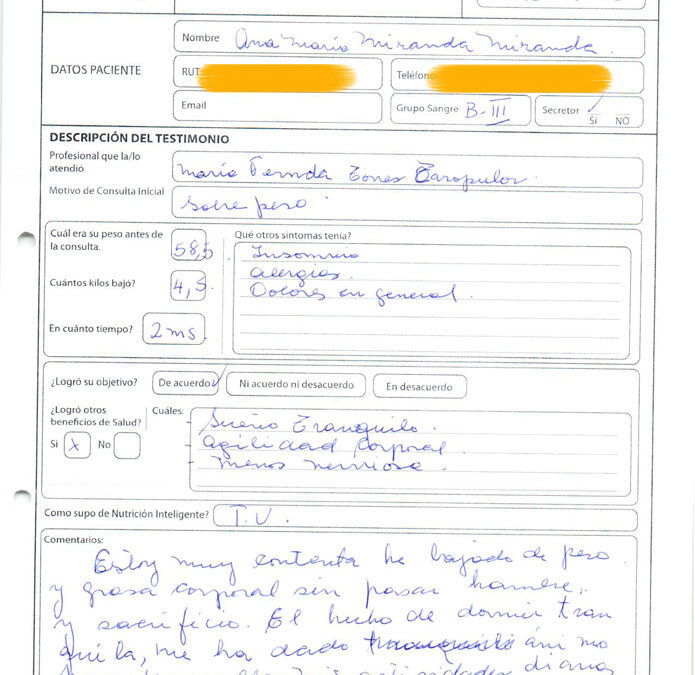 Nombre Ana María Miranda Miranda.
DATOS PACIENTE
RUT
Teléfono
Email
Grupo Sangre B-III
Secretor
Si NO
DESCRIPCIÓN DEL TESTIMONIO
Profesional que la/lo
atendió
María Fernda
Motivo de Consulta Inicial
Sobre peso
Cuál era su peso antes de
la consulta.
58,5
Qué otros sintomas tenía?
Insomnio
Alergias.
Dolores en general.
Cuántos kilos bajó?
4,5.
En cuánto tiempo?
2 ms.
¿Logró su objetivo?
De acuerdo
Ni acuerdo ni desacuerdo
En desacuerdo
¿Logró otros
beneficios de Salud?
Si X No
Cuáles:
- Sueño Tranquilo.
- Agilidad Corporal.
- Menos nerviosa.
Como supo de Nutrición Inteligente? T.V.
Comentarios:
Estoy muy contenta he bajado de peso
y grasa corporal sin pasar hambre,
y sacrificio. El hecho de dormir tran
quila, me ha dado áni mo